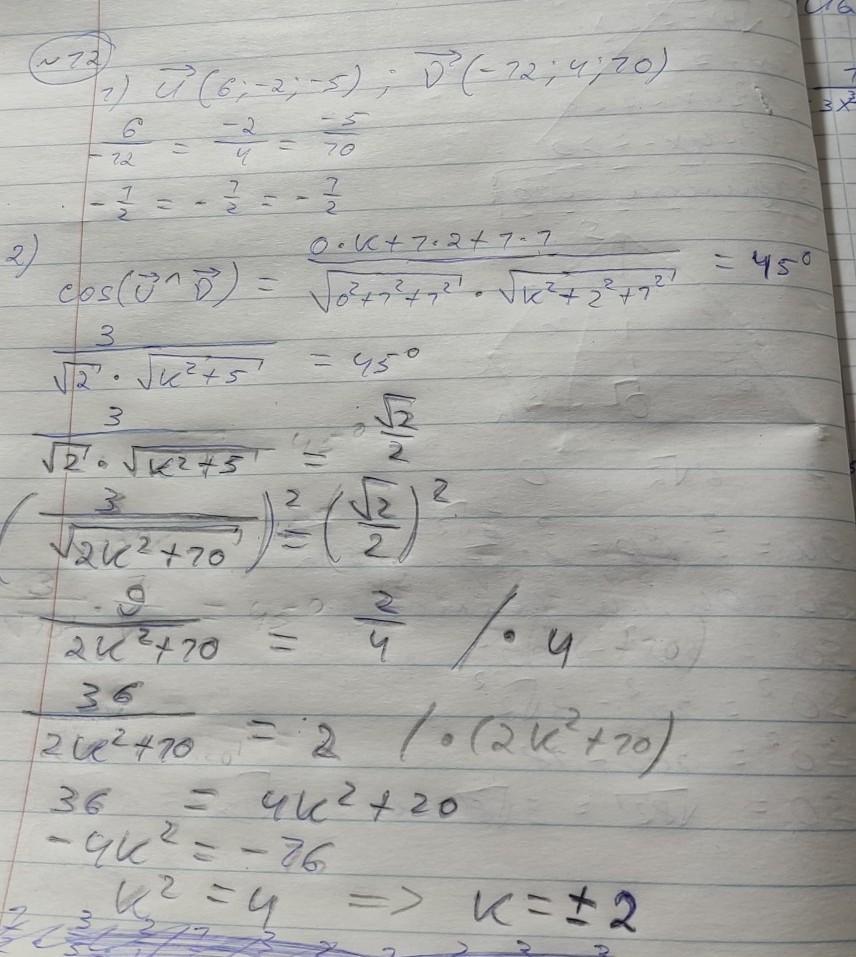 №12
1) u⃗ (6; -2; -5) ; v⃗ (-12; 4; 10)
6/-12 = -2/4 = -5/10
-1/2 = -1/2 = -1/2
2) cos(u⃗ ^ v⃗) = (0·k+1·2+1·1)/(√(0²+1²+1²) · √(k²+2²+1²)) = 45°
3/(√2 · √(k²+5)) = 45°
3/(√2 · √(k²+5)) = √2/2
(3/√(2k²+10))² = (√2/2)²
9/(2k²+10) = 2/4 /· 4
36/(2k²+10) = 2 /·(2k²+10)
36 = 4k²+20
-4k² = -16
k² = 4 => k = ±2